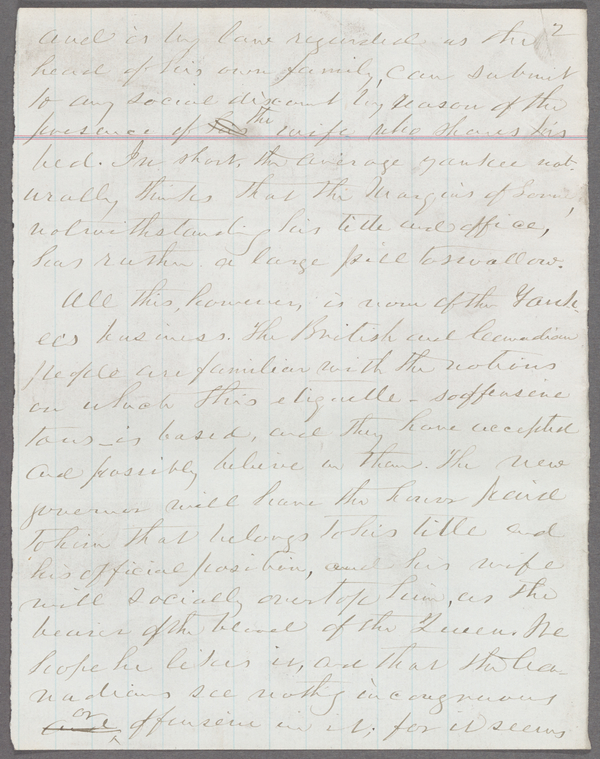 2
and is by law regarded as the
head of his own family, can submit
to any social discount by reason of the
presence of his the wife who shares his
bed. In short, the average yankee nat-
urally thinks that the Marquis of Lorne,
notwithstanding his title and office,
has rather a large pill to swallow.
All this, however, is none of the Yank-
ees business. The British and Canadian
people are familiar with the notions
on which this etiquette - so offensive
to us - is based, and they have accepted
and possibly believe in them. The new
governor will have the honor paid
to him that belongs to his title and
his official position, and his wife
will socially overtop him, as the
bearer of the blood of the Queen. We
hope he likes it, and that the Ca-
nadians see nothing incongruous
and or offensive in it; for it seems